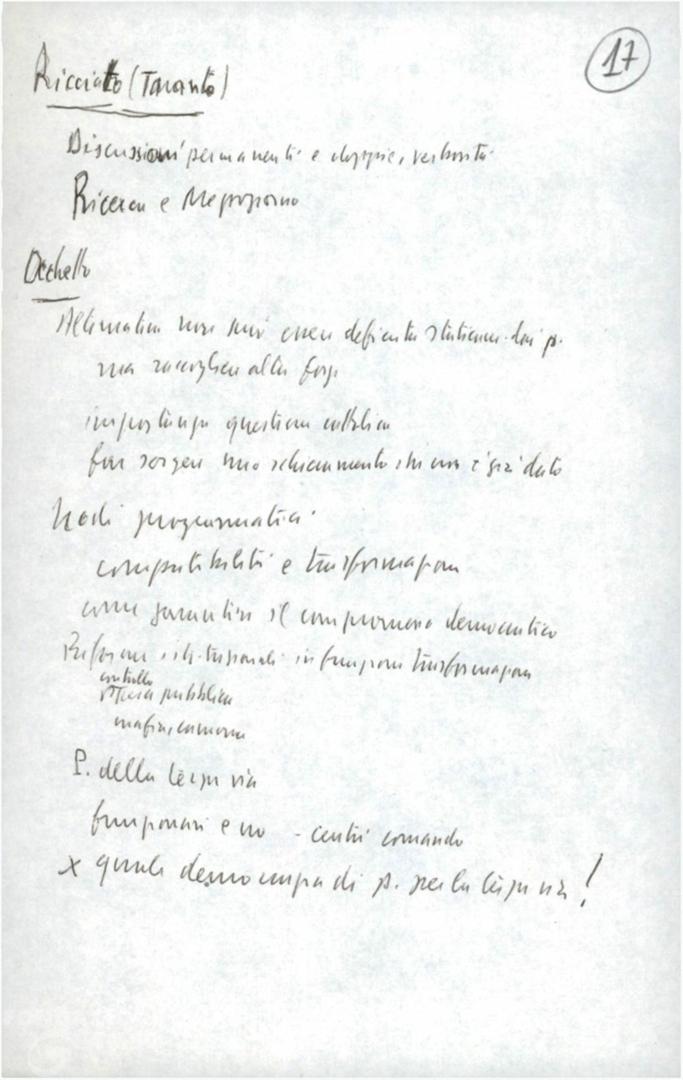 17
Ricciato (Taranto)
Discussioni permanenti e doppie, verbosità
Ricerca e
Occhetto
Alternativa non può essere definita statica dai p.
ma raccogliere altre forze
importanza questione cattolica
far sorgere uno schieramento che non è già dato
Nodi programmatici
compatibilità e trasformazione
come garantire il compromesso democratico
Riforme istituzionali in funzione trasformazione
controllo
spesa pubblica
mafia, camorra
P. della terza via
funzionari e no - centri comando
x quale democrazia di p. per la terza via!